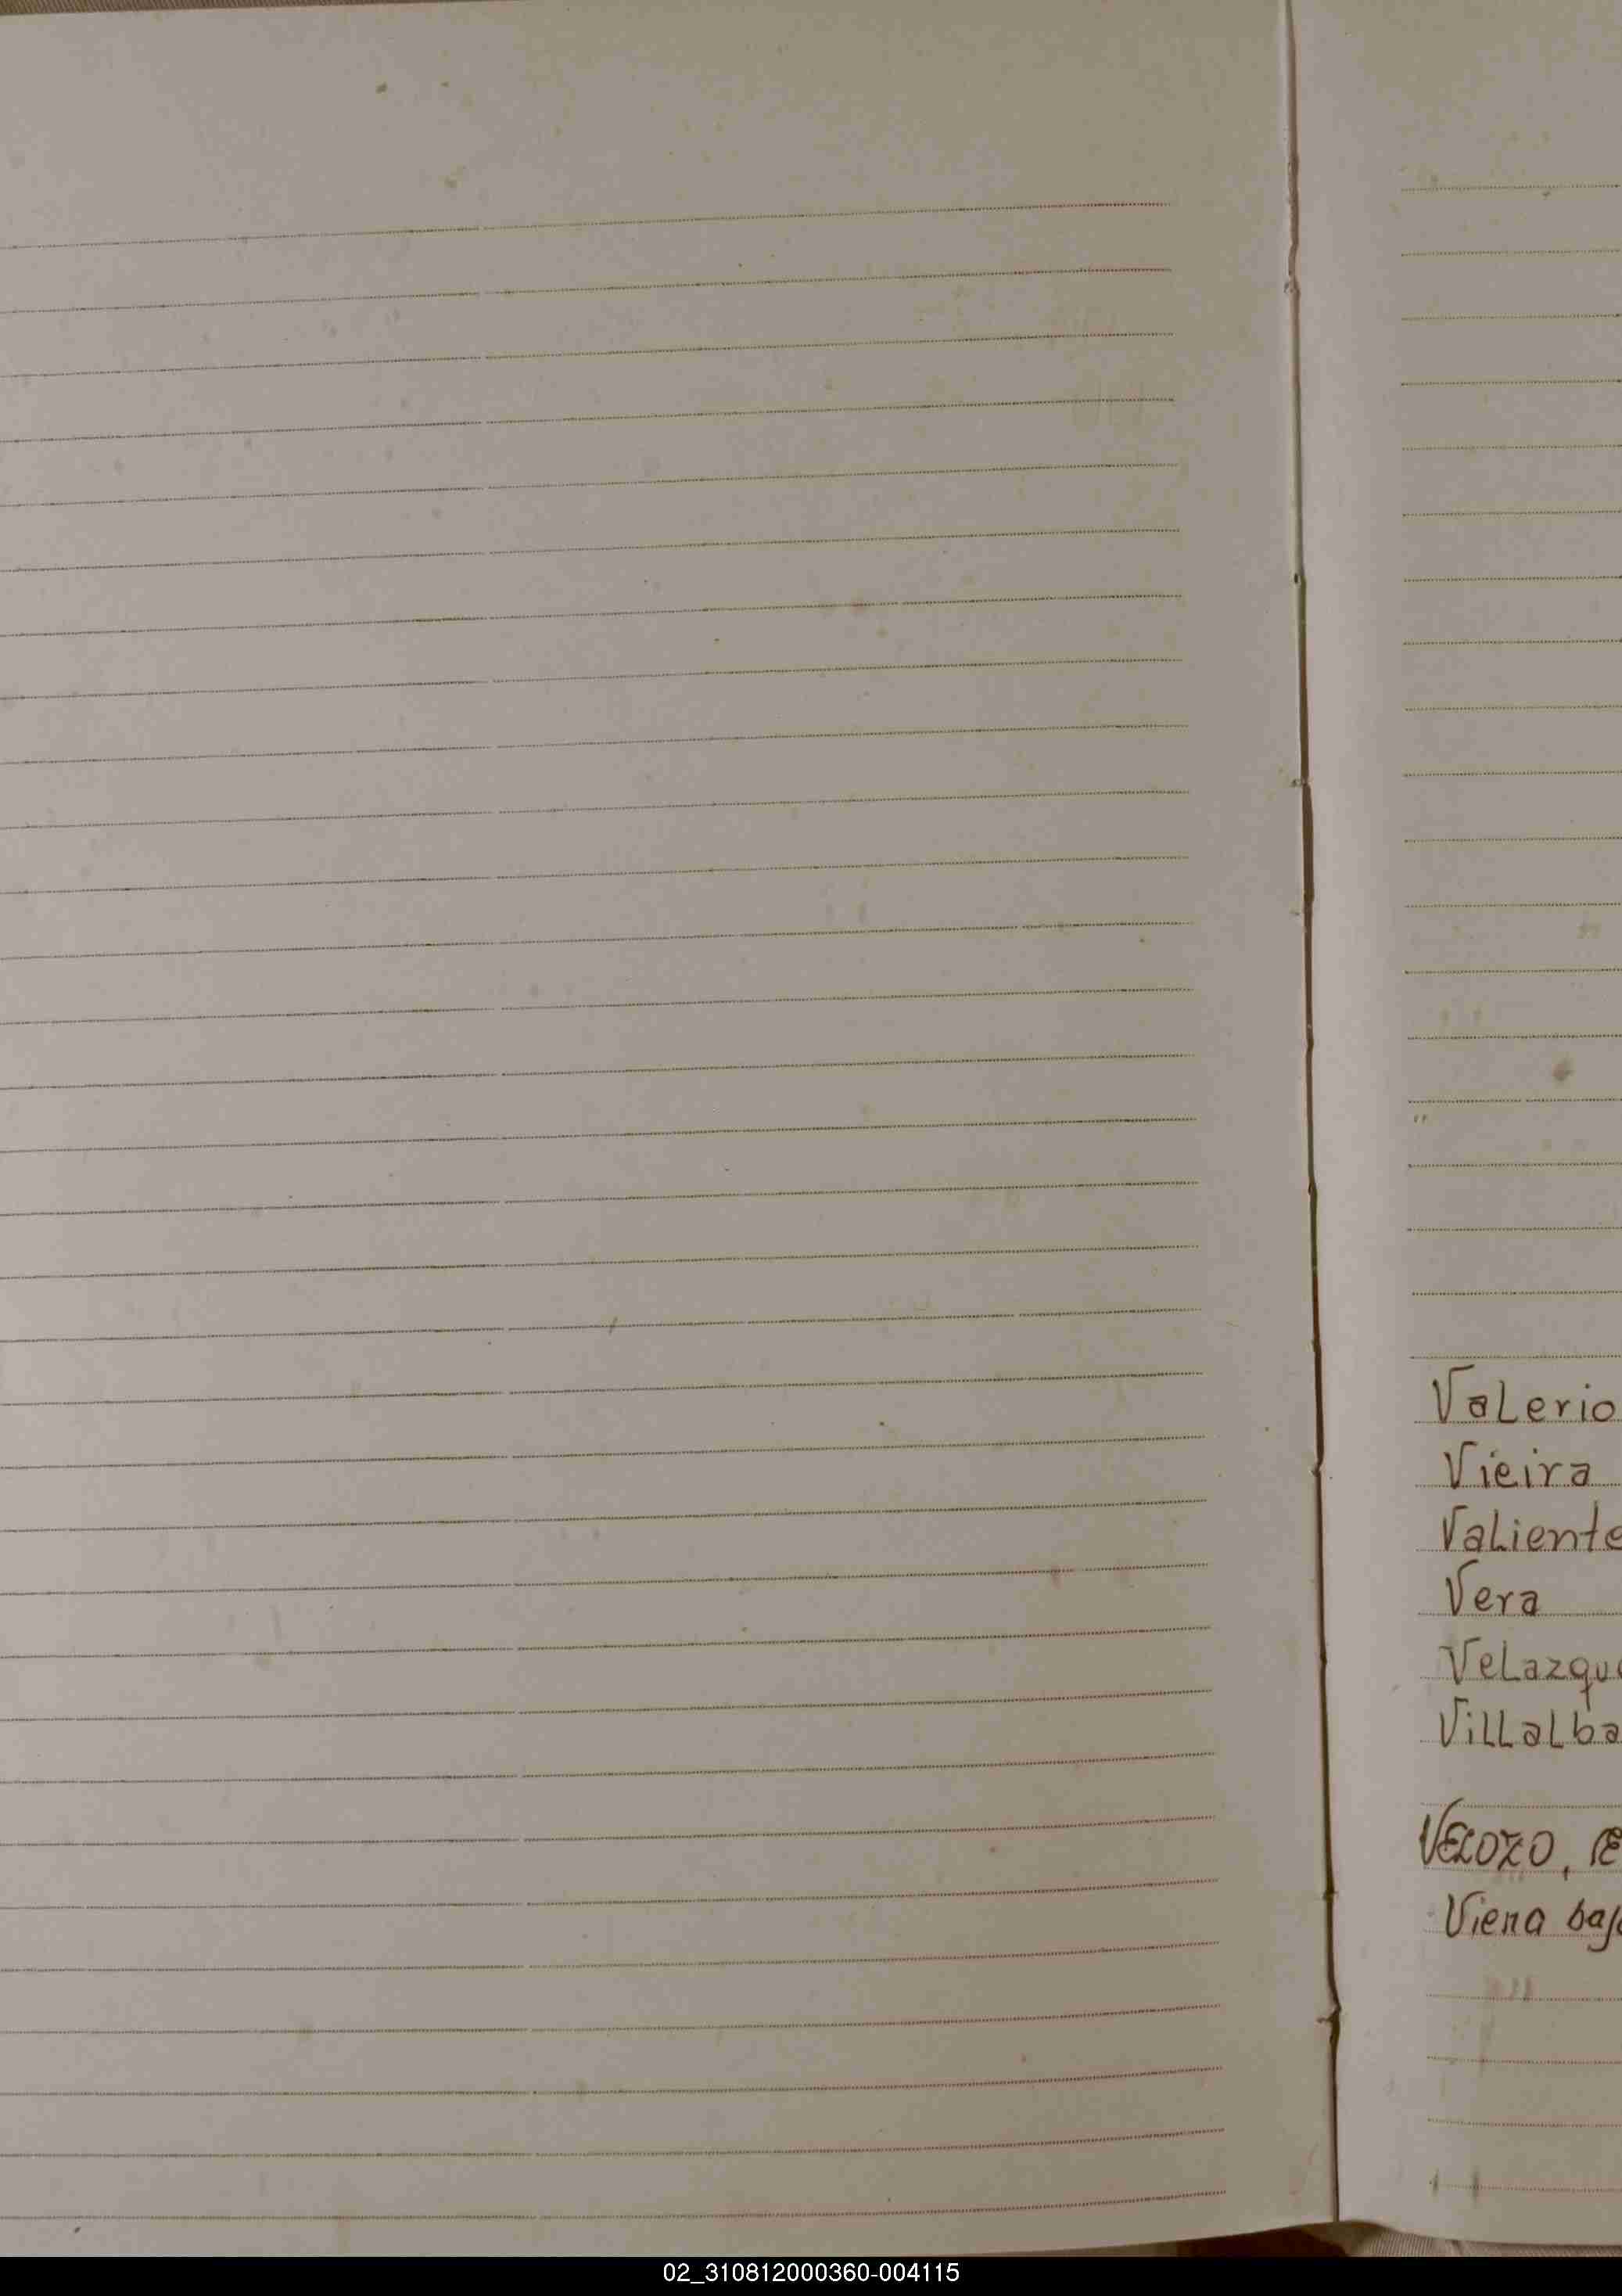 Valerio
Vieira
Valiente
Vera
Velazqu
Villalba
VELOZO,
Viena baj
02_310812000360-004115